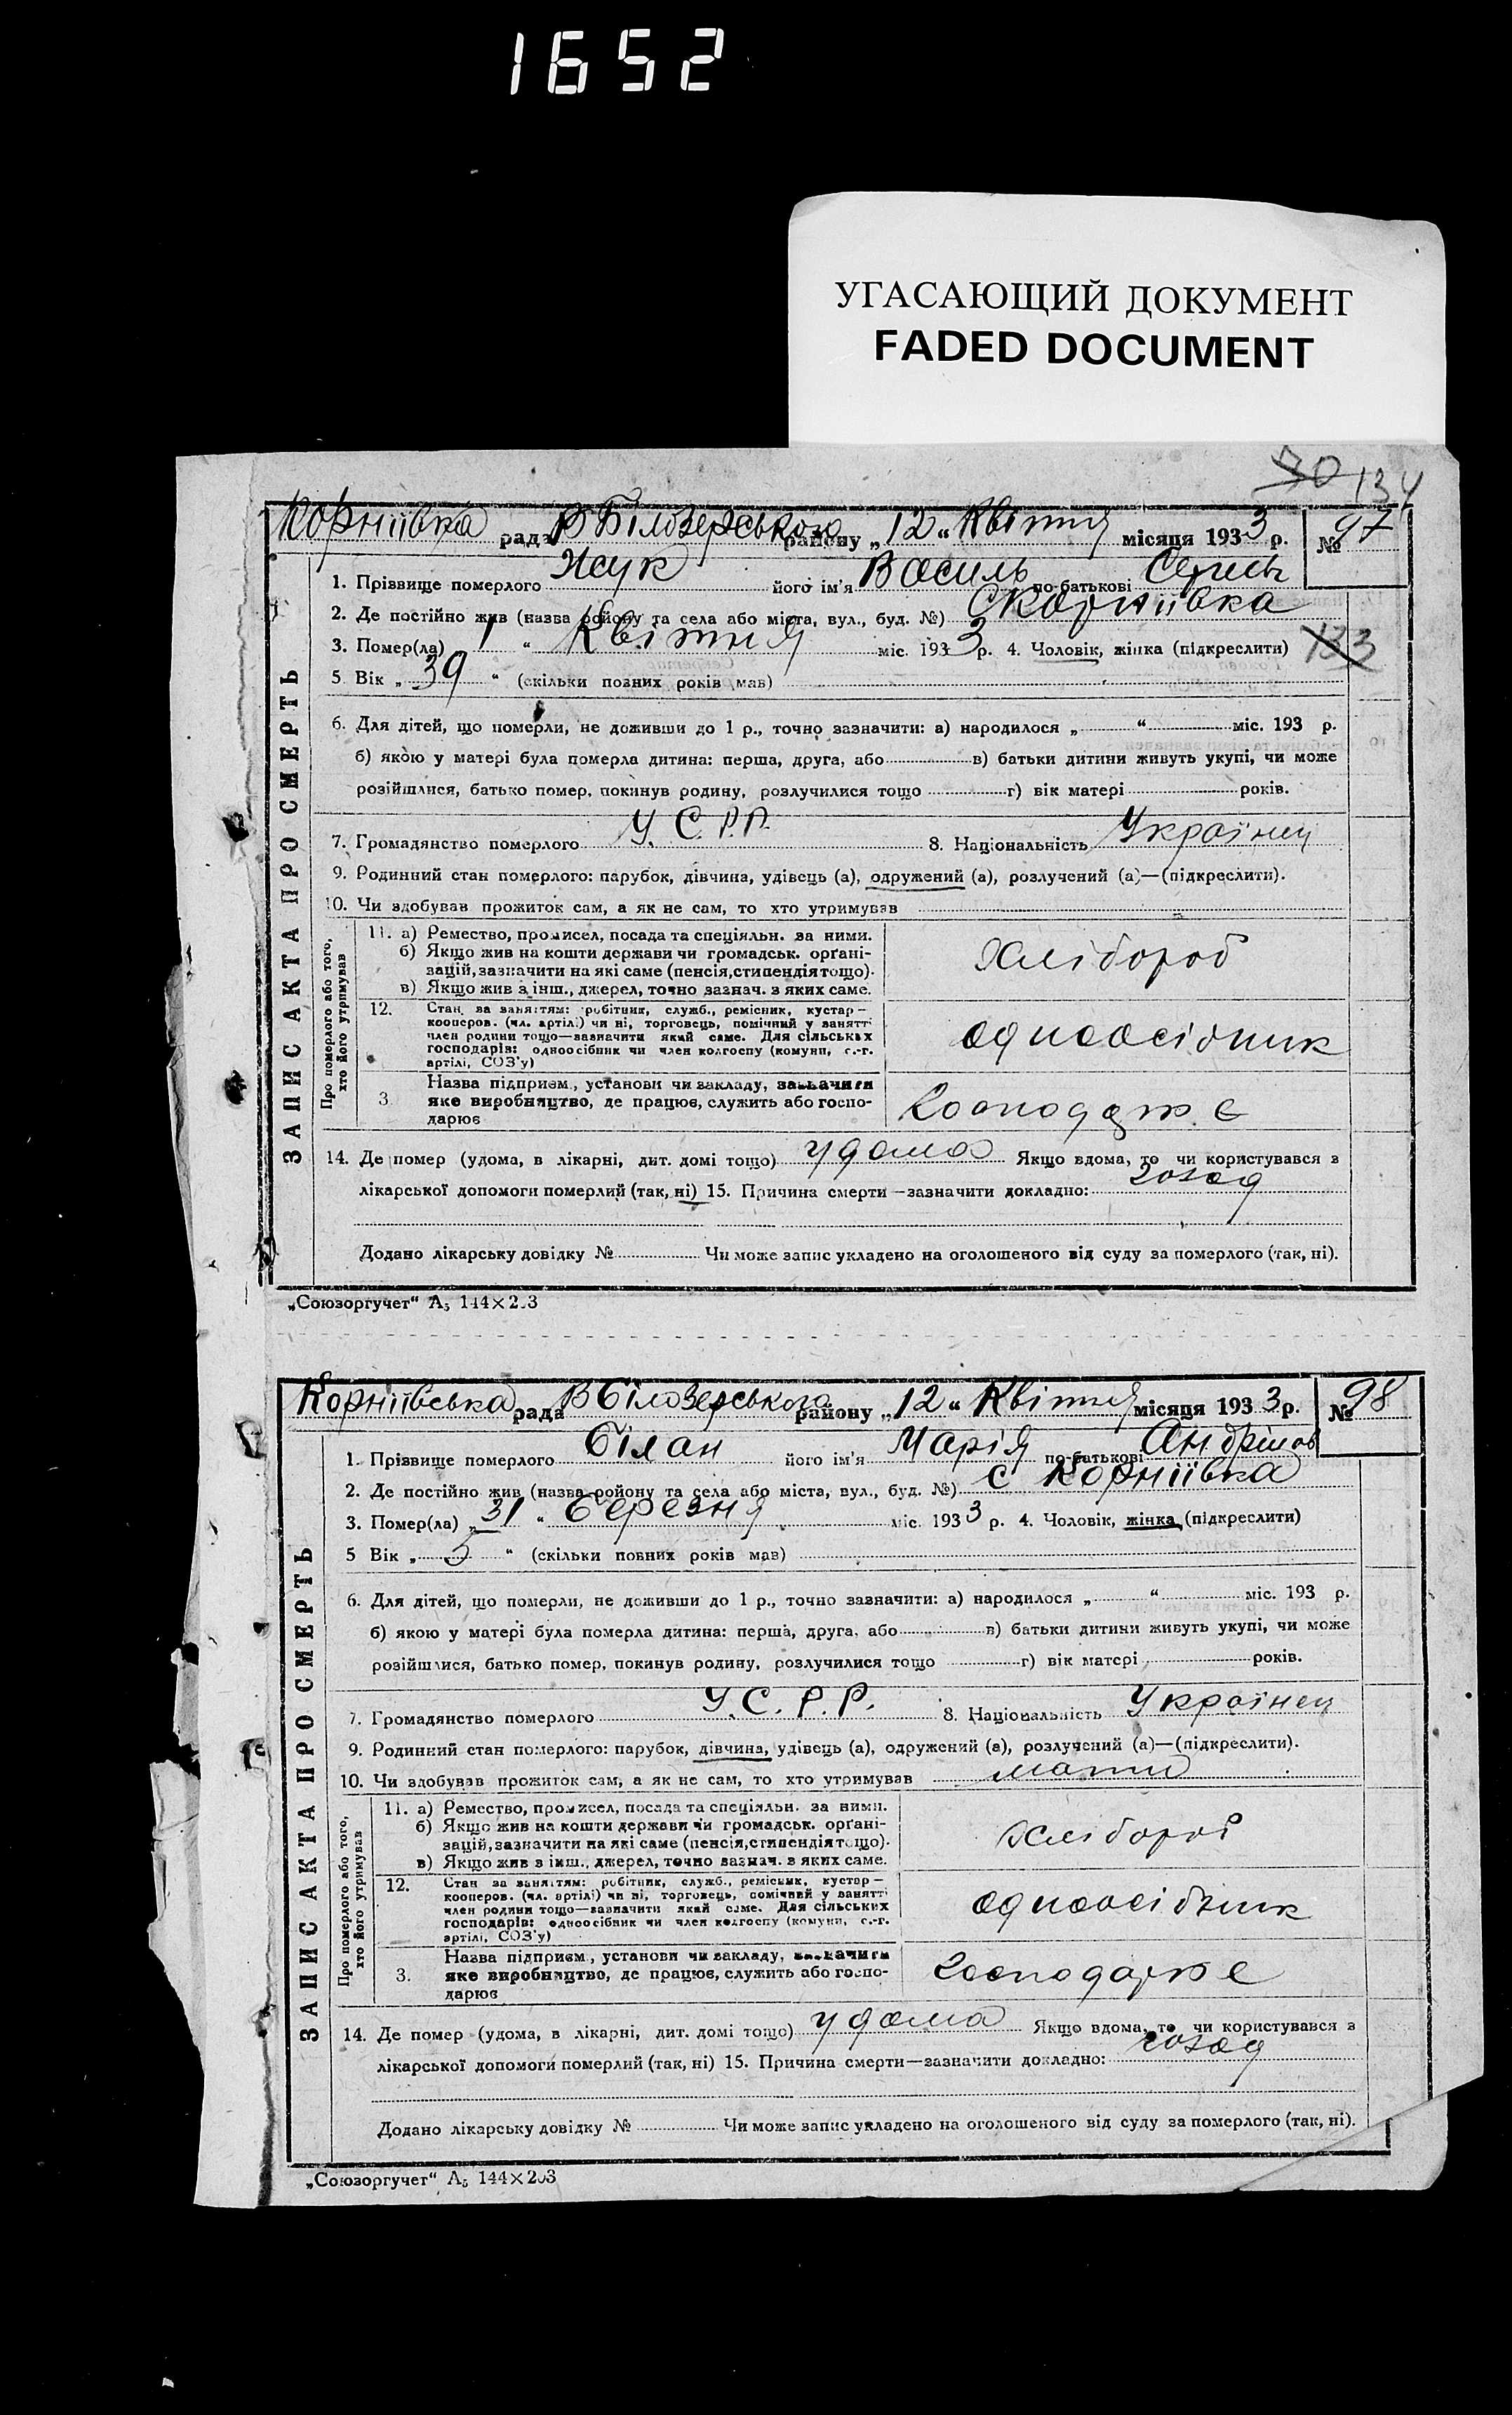 1652
УГАСАЮЩИЙ ДОКУМЕНТ
FADED DOCUMENT
70 134
Корніівка рада В Білозерського району „12“ Квітня місяця 1933 р. № 97
1. Прізвище померлого Жук його ім'я Василь по-батькові
2. Де постійно жив (назва району та села або міста, вул., буд. №) С Корніівка
3. Помер(ла) 1 “ Квітня міс. 1933 р. 4. Чоловік, жінка (підкреслити) 133
5 Вік „ 39 “ (скільки повних років мав)
6. Для дітей, що померли, не доживши до 1 р., точно зазначити: а) народилося „ “ міс. 193 р.
б) якою у матері була померла дитина: перша, друга, або в) батьки дитини живуть укупі, чи може
розійшлися, батько помер, покинув родину, розлучилися тощо г) вік матері років.
7. Громадянство померлого У.С.Р.Р. 8. Національність Українец
9. Родинний стан померлого: парубок, дівчина, удівець (а), одружений (а), розлучений (а)—(підкреслити).
10. Чи здобував прожиток сам, а як не сам, то хто утримував
ЗАПИС АКТА ПРО СМЕРТЬ
Про померлого або того, хто його утримував
11. а) Ремество, промисел, посада та спеціяльн. за ними.
б) Якщо жив на кошти держави чи громадськ. орґані-
зацій, зазначити на які саме (пенсія, стипендія тощо).
в) Якщо жив з інш., джерел, точно зазнач. з яких саме.
Хлібороб
12. Стан за заняттям: робітник, служб., ремісник, кустар—
кооперов. (чл. артілі) чи ні, торговець, помічний у занятті
член родини тощо—зазначити який саме. Для сільських
господарів: одноосібник чи член колгоспу (комуни, с.-г.
артілі, СОЗ'у)
одноосібник
3 Назва підприєм., установи чи закладу, зазначити
яке виробництво, де працює, служить або госпо-
дарює
Господарює
14. Де помер (удома, в лікарні, дит. домі тощо) удома Якщо вдома, то чи користувався з
лікарської допомоги померлий (так, ні) 15. Причина смерти—зазначити докладно: голод
Додано лікарську довідку № Чи може запис укладено на оголошеного від суду за померлого (так, ні).
„Союзоргучет“ А5 144×203
Корніівська рада В Білозерського району „12“ Квітня місяця 1933 р. № 98
1. Прізвище померлого Білан його ім'я Марія по-батькові
2. Де постійно жив (назва району та села або міста, вул., буд. №) С Корніівка
3. Помер(ла) „31“ Березня міс. 1933 р. 4. Чоловік, жінка (підкреслити)
5 Вік „ 5 “ (скільки повних років мав)
6. Для дітей, що померли, не доживши до 1 р., точно зазначити: а) народилося „ “ міс. 193 р.
б) якою у матері була померла дитина: перша, друга, або в) батьки дитини живуть укупі, чи може
розійшлися, батько помер, покинув родину, розлучилися тощо г) вік матері років.
7. Громадянство померлого У.С.Р.Р. 8. Національність Українец
9. Родинний стан померлого: парубок, дівчина, удівець (а), одружений (а), розлучений (а)—(підкреслити).
10. Чи здобував прожиток сам, а як не сам, то хто утримував мати
ЗАПИС АКТА ПРО СМЕРТЬ
Про померлого або того, хто його утримував
11. а) Ремество, промисел, посада та спеціяльн. за ними.
б) Якщо жив на кошти держави чи громадськ. орґані-
зацій, зазначити на які саме (пенсія, стипендія тощо).
в) Якщо жив з інш., джерел, точно зазнач. з яких саме.
Хлібороб
12. Стан за заняттям: робітник, служб., ремісник, кустар—
кооперов. (чл. артілі) чи ні, торговець, помічний у занятті
член родини тощо—зазначити який саме. Для сільських
господарів: одноосібник чи член колгоспу (комуни, с.-г.
артілі, СОЗ'у)
одноосібник
3. Назва підприєм., установи чи закладу, зазначити
яке виробництво, де працює, служить або госпо-
дарює
Господарює
14. Де помер (удома, в лікарні, дит. домі тощо) удома Якщо вдома, то чи користувався з
лікарської допомоги померлий (так, ні) 15. Причина смерти—зазначити докладно: голод
Додано лікарську довідку № Чи може запис укладено на оголошеного від суду за померлого (так, ні).
„Союзоргучет“ А5 144×203